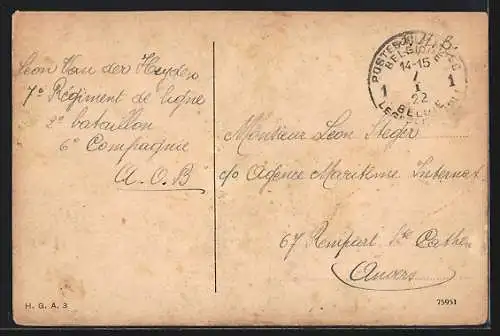 Leon Van der Heyden
7e Régiment de ligne
2e bataillon
6e Compagnie
A.O.B
S.M.
POSTES MILITAIRES
BELGIQUE
14-15
7
1 I 1
22
BELGIE
LEGERPOSTERIJ
Monsieur Leon Steger
c/o Agence Maritime Internat.
67 Rempart Ste Cather
Anvers
H. G. A. 3
75951